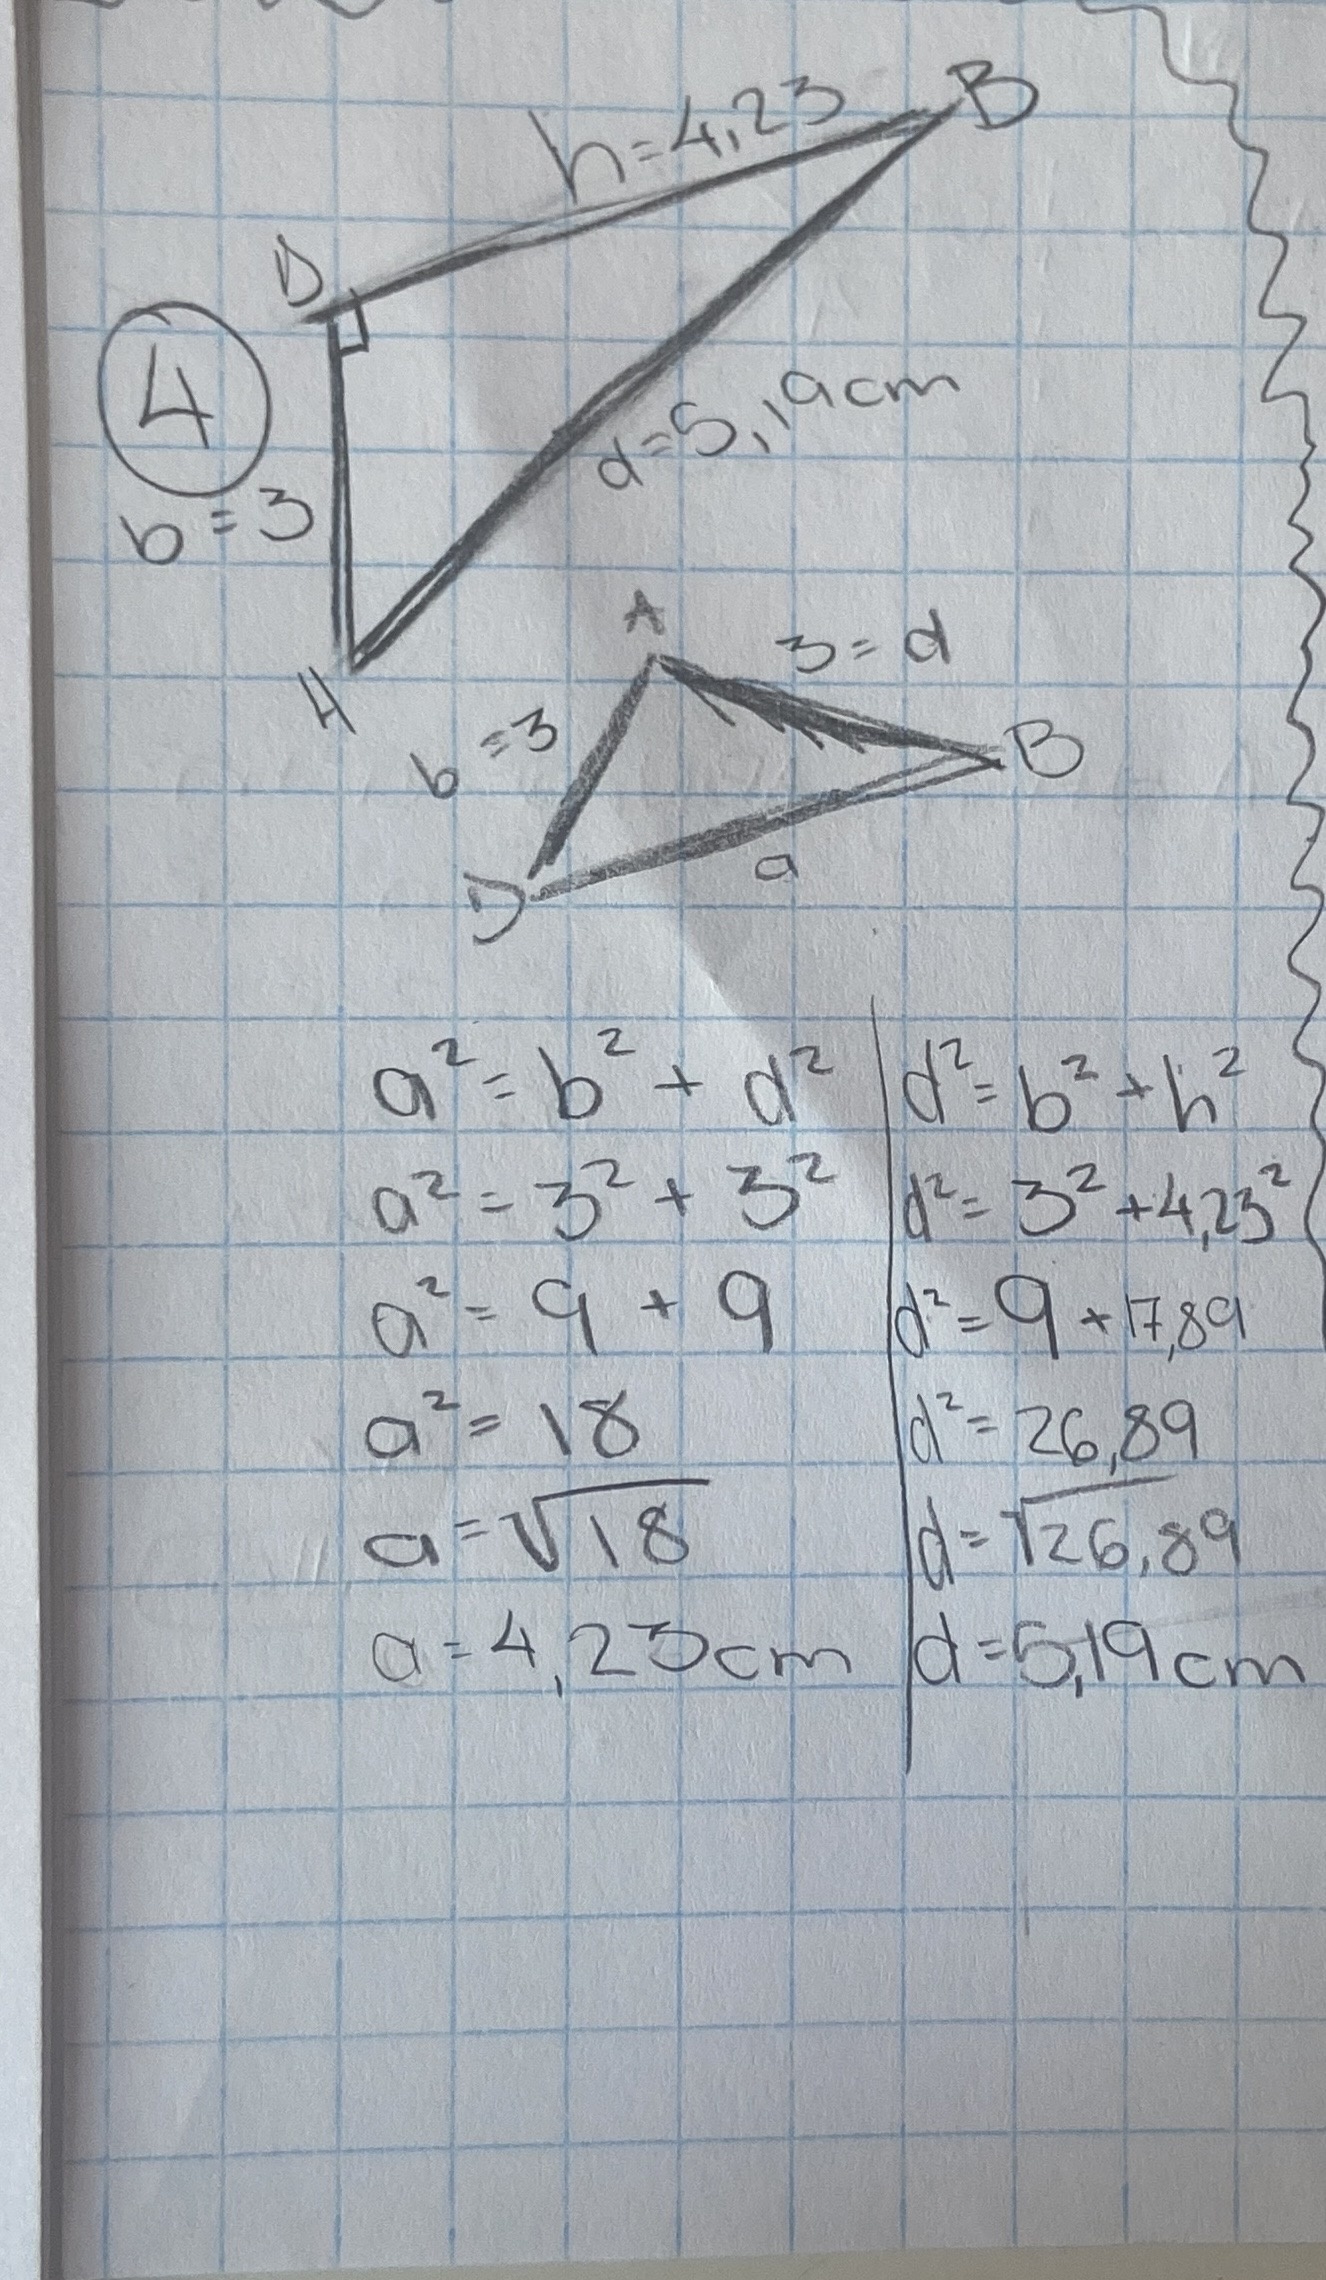 B
h=4,23
D
4
d=5,19cm
b=3
H
A
3=d
b=3
B
D
a
a²=b²+d²
a²=3²+3²
a²=9+9
a²=18
a=√18
a=4,23cm
d²=b²+h²
d²=3²+4,23²
d²=9+17,89
d²=26,89
d=√26,89
d=5,19cm